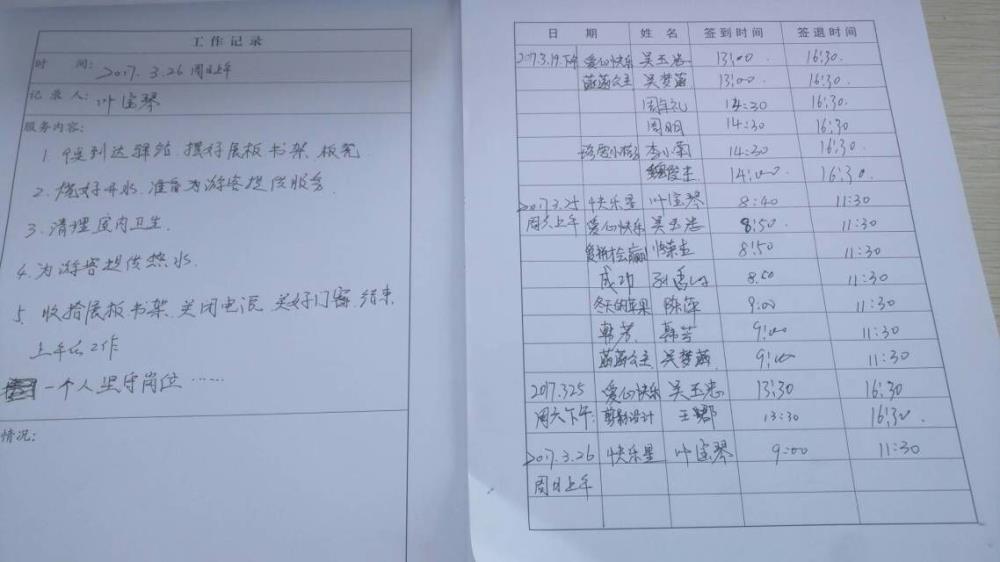 工作记录
时 间: 2017.3.26 周日上午
记录人: 叶宝琴
服务内容:
1. 到达驿站,摆好展板书架,板凳
2. 烧好开水,准备为游客提供服务.
3. 清理室内卫生.
4. 为游客提供热水.
5. 收拾展板书架,关闭电源,关好门窗,结束
上午的工作
一个人坚守岗位……
情况:
日 期 姓 名 签到时间 签退时间
2017.3.19.下午 爱心快乐 吴玉忠 13:00. 16:30.
菡菡公主 吴梦菡 13:00. 16:30.
周年礼 14:30 16:30.
周明 14:30 16:30
李小菊 14:30 16:30.
14:00 16:30.
2017.3.25 快乐星 叶宝琴 8:40 11:30
周六上午 爱心快乐 吴玉忠 8:50. 11:30
爱拼才会赢 8:50 11:30
成功 8:50 11:30
冬天的苹果 陈萍 9:00 11:30
韩芳 韩芳 9:00 11:30
菡菡公主 吴梦菡 9:00 11:30
2017.3.25 爱心快乐 吴玉忠 13:30 16:30
周六下午: 剪影设计 王 13:30 16:30.
2017.3.26 快乐星 叶宝琴 9:00 11:30
周日上午